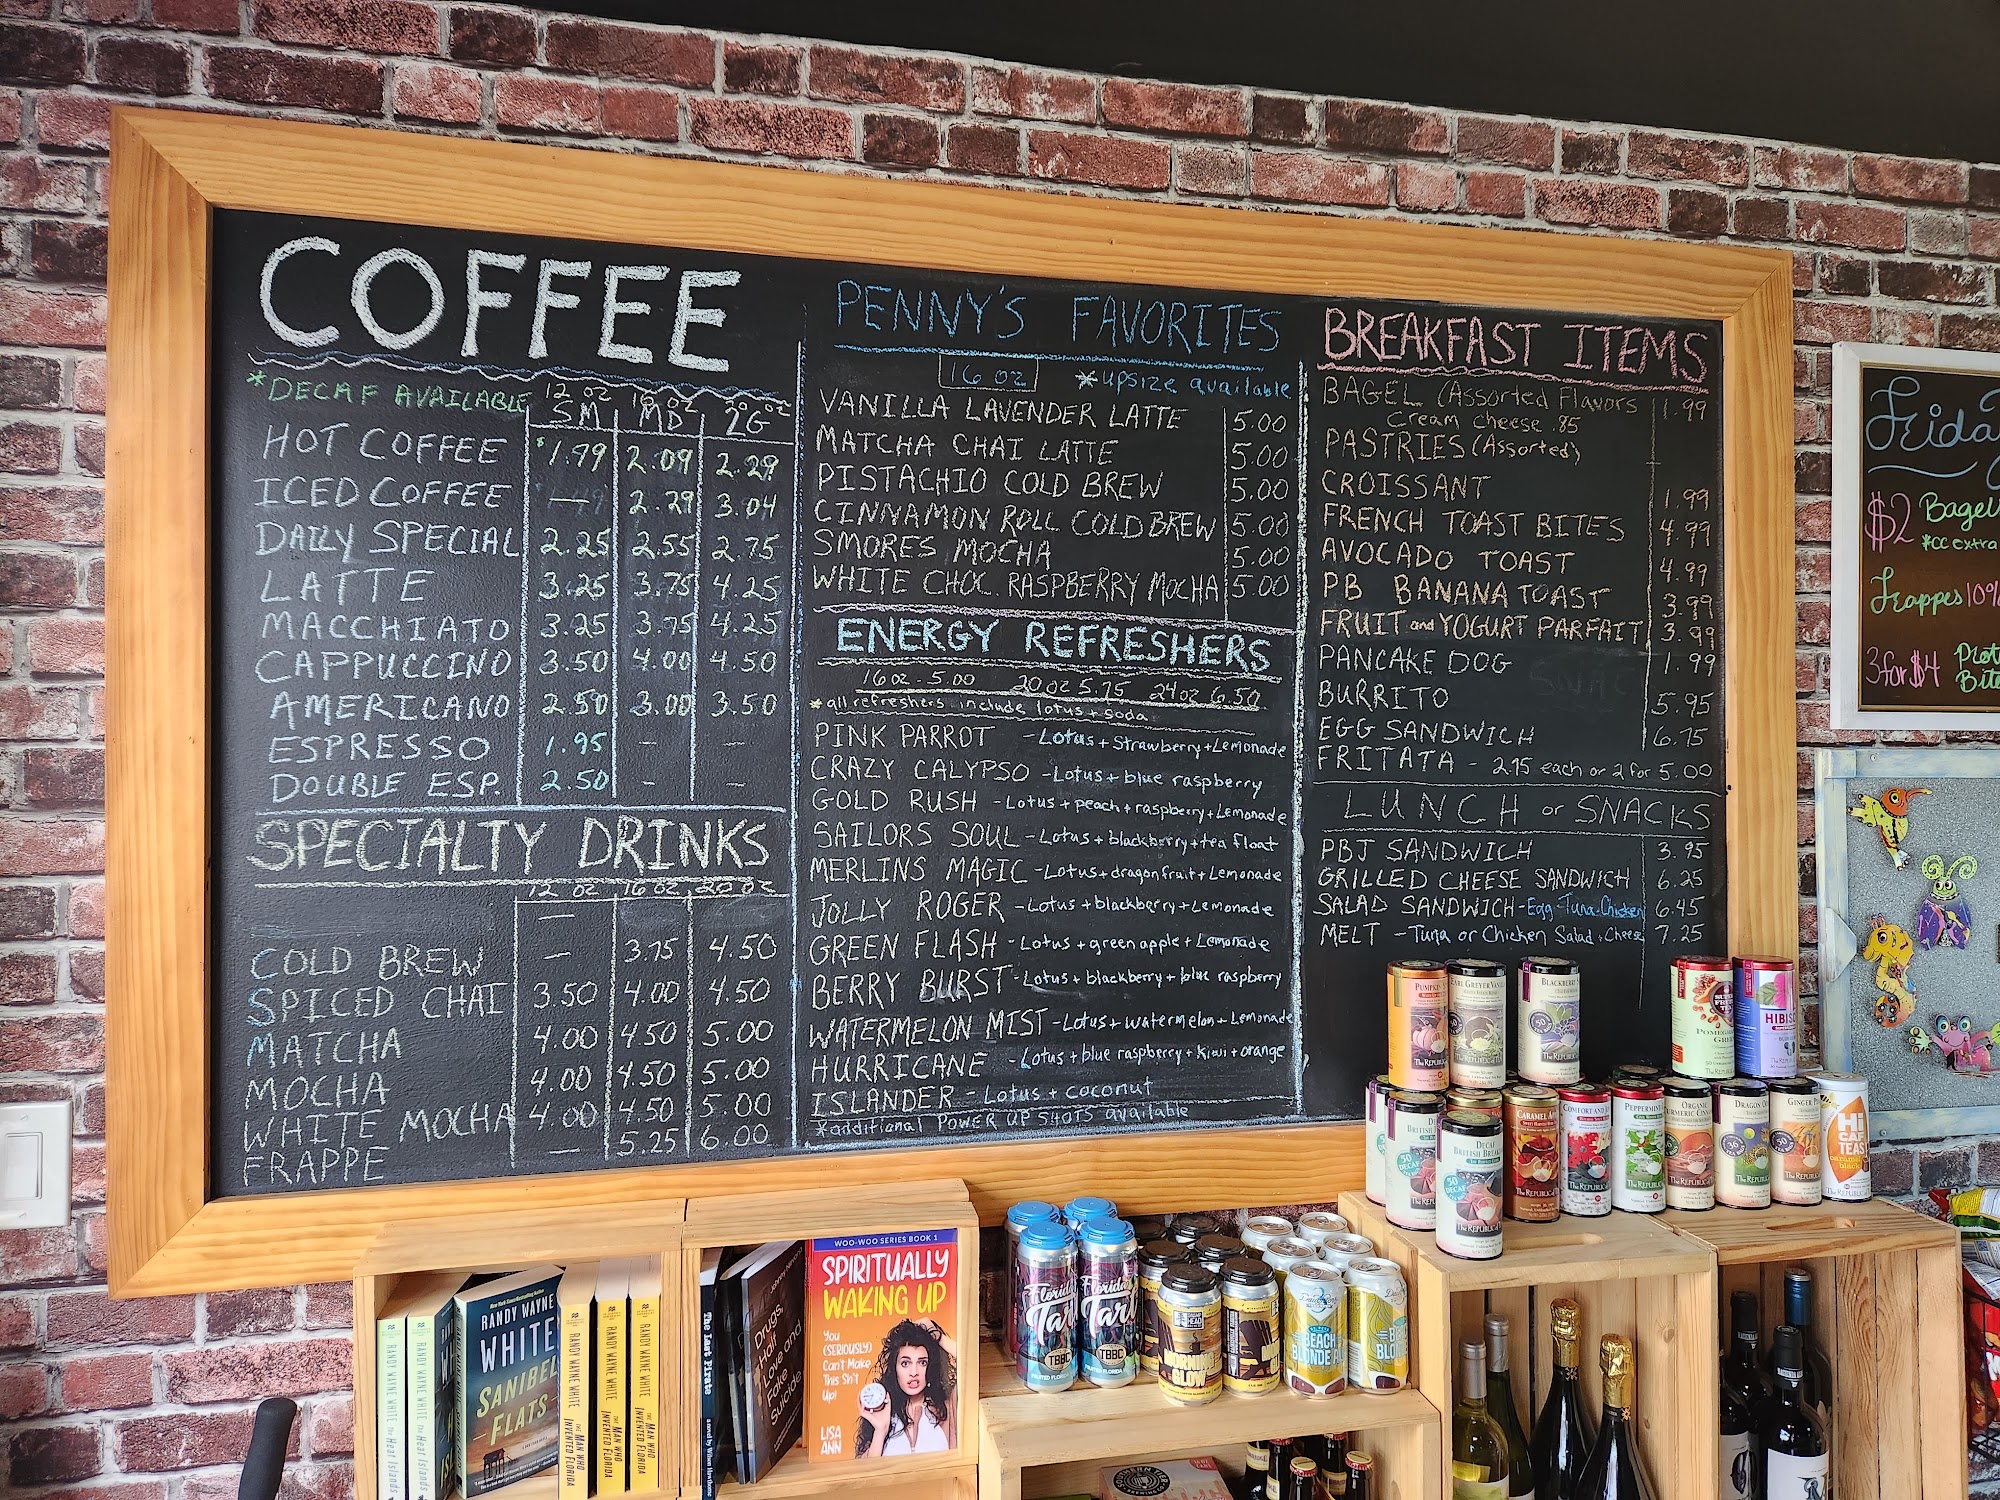 COFFEE
*DECAF AVAILABLE
12 oz 16 oz 20 oz
SM MD LG
HOT COFFEE $1.79 2.09 2.29
ICED COFFEE — 2.29 3.04
DAILY SPECIAL 2.25 2.55 2.75
LATTE 3.25 3.75 4.25
MACCHIATO 3.25 3.75 4.25
CAPPUCCINO 3.50 4.00 4.50
AMERICANO 2.50 3.00 3.50
ESPRESSO 1.95 - -
DOUBLE ESP. 2.50 - -
SPECIALTY DRINKS
12 oz 16 oz 20 oz
COLD BREW — 3.75 4.50
SPICED CHAI 3.50 4.00 4.50
MATCHA 4.00 4.50 5.00
MOCHA 4.00 4.50 5.00
WHITE MOCHA 4.00 4.50 5.00
FRAPPE — 5.25 6.00
PENNY'S FAVORITES
16 oz *upsize available
VANILLA LAVENDER LATTE 5.00
MATCHA CHAI LATTE 5.00
PISTACHIO COLD BREW 5.00
CINNAMON ROLL COLD BREW 5.00
SMORES MOCHA 5.00
WHITE CHOC. RASPBERRY MOCHA 5.00
ENERGY REFRESHERS
16 oz - 5.00 20 oz 5.75 24 oz 6.50
*all refreshers include lotus + soda
PINK PARROT - Lotus + Strawberry + Lemonade
CRAZY CALYPSO - Lotus + blue raspberry
GOLD RUSH - Lotus + peach + raspberry + Lemonade
SAILORS SOUL - Lotus + blackberry + tea float
MERLINS MAGIC - Lotus + dragonfruit + Lemonade
JOLLY ROGER - Lotus + blackberry + Lemonade
GREEN FLASH - Lotus + green apple + Lemonade
BERRY BURST - Lotus + blackberry + blue raspberry
WATERMELON MIST - Lotus + watermelon + Lemonade
HURRICANE - Lotus + blue raspberry + kiwi + orange
ISLANDER - Lotus + coconut
*additional POWER UP SHOTS available
BREAKFAST ITEMS
BAGEL (Assorted Flavors 1.99
Cream cheese .85
PASTRIES (Assorted)
CROISSANT 1.99
FRENCH TOAST BITES 4.99
AVOCADO TOAST 4.99
PB BANANA TOAST 3.99
FRUIT and YOGURT PARFAIT 3.99
PANCAKE DOG 1.99
BURRITO 5.95
EGG SANDWICH 6.75
FRITATA - 2.75 each or 2 for 5.00
LUNCH or SNACKS
PBJ SANDWICH 3.95
GRILLED CHEESE SANDWICH 6.25
SALAD SANDWICH - Egg-Tuna-Chicken 6.45
MELT - Tuna or Chicken Salad + Cheese 7.25
Frida
$2 Bagel
*CC extra
Frappes 10%
3 for $4 Prot
Bite
PUMPKIN
EARL GREYER VANILLA
BLACKBERRY
HIBISC
DECAF
BRITISH BREAK
CARAMEL AP
COMFORT AND
PEPPERMINT
ORGANIC
TURMERIC CINNA
DRAGON O
GINGER P
HI
CAF
TEAS
caramel
black
THE REPUBLIC
RANDY WAYNE WHITE
RANDY WAYNE
WHITE
SANIBEL
FLATS
RANDY WAYNE WHITE THE MAN WHO INVENTED FLORIDA
RANDY WAYNE WHITE THE MAN WHO INVENTED FLORIDA
RANDY WAYNE WHITE THE MAN WHO INVENTED FLORIDA
The Heat Islands
The Heat Islands
The Last Pirate
Drugs,
Half
Love and
Fake
Suicide
WOO-WOO SERIES BOOK 1
SPIRITUALLY
WAKING UP
You
(SERIOUSLY)
Can't Make
This Sh*t
Up!
LISA
ANN
Florida
Tart
TBBC
Florida
Tart
TBBC
MORNING
GLOW
BEACH
BLONDE ALE
BLOND